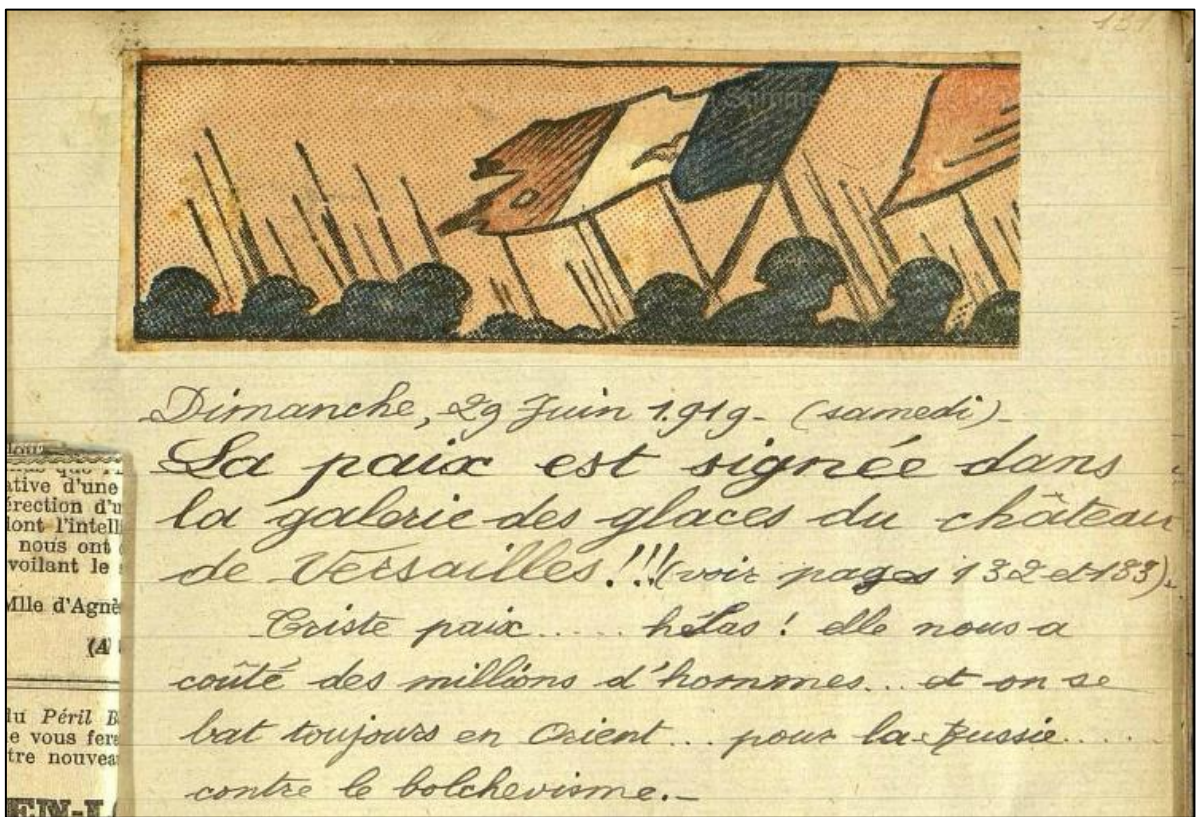 131
Dimanche, 29 Juin 1.919- (samedi)-
La paix est signée dans
la galerie des glaces du château
de Versailles!!!(voir pages 132 et 133).
Triste paix..... hélas! elle nous a
coûté des millions d'hommes... et on se
bat toujours en Orient... pour la Russie.....
contre le bolchevisme.-
ative d'une
érection d'u
dont l'intell
nous ont
voilant le
Mlle d'Agnè
(A
du Péril B
e vous fera
tre nouvea
EN-L